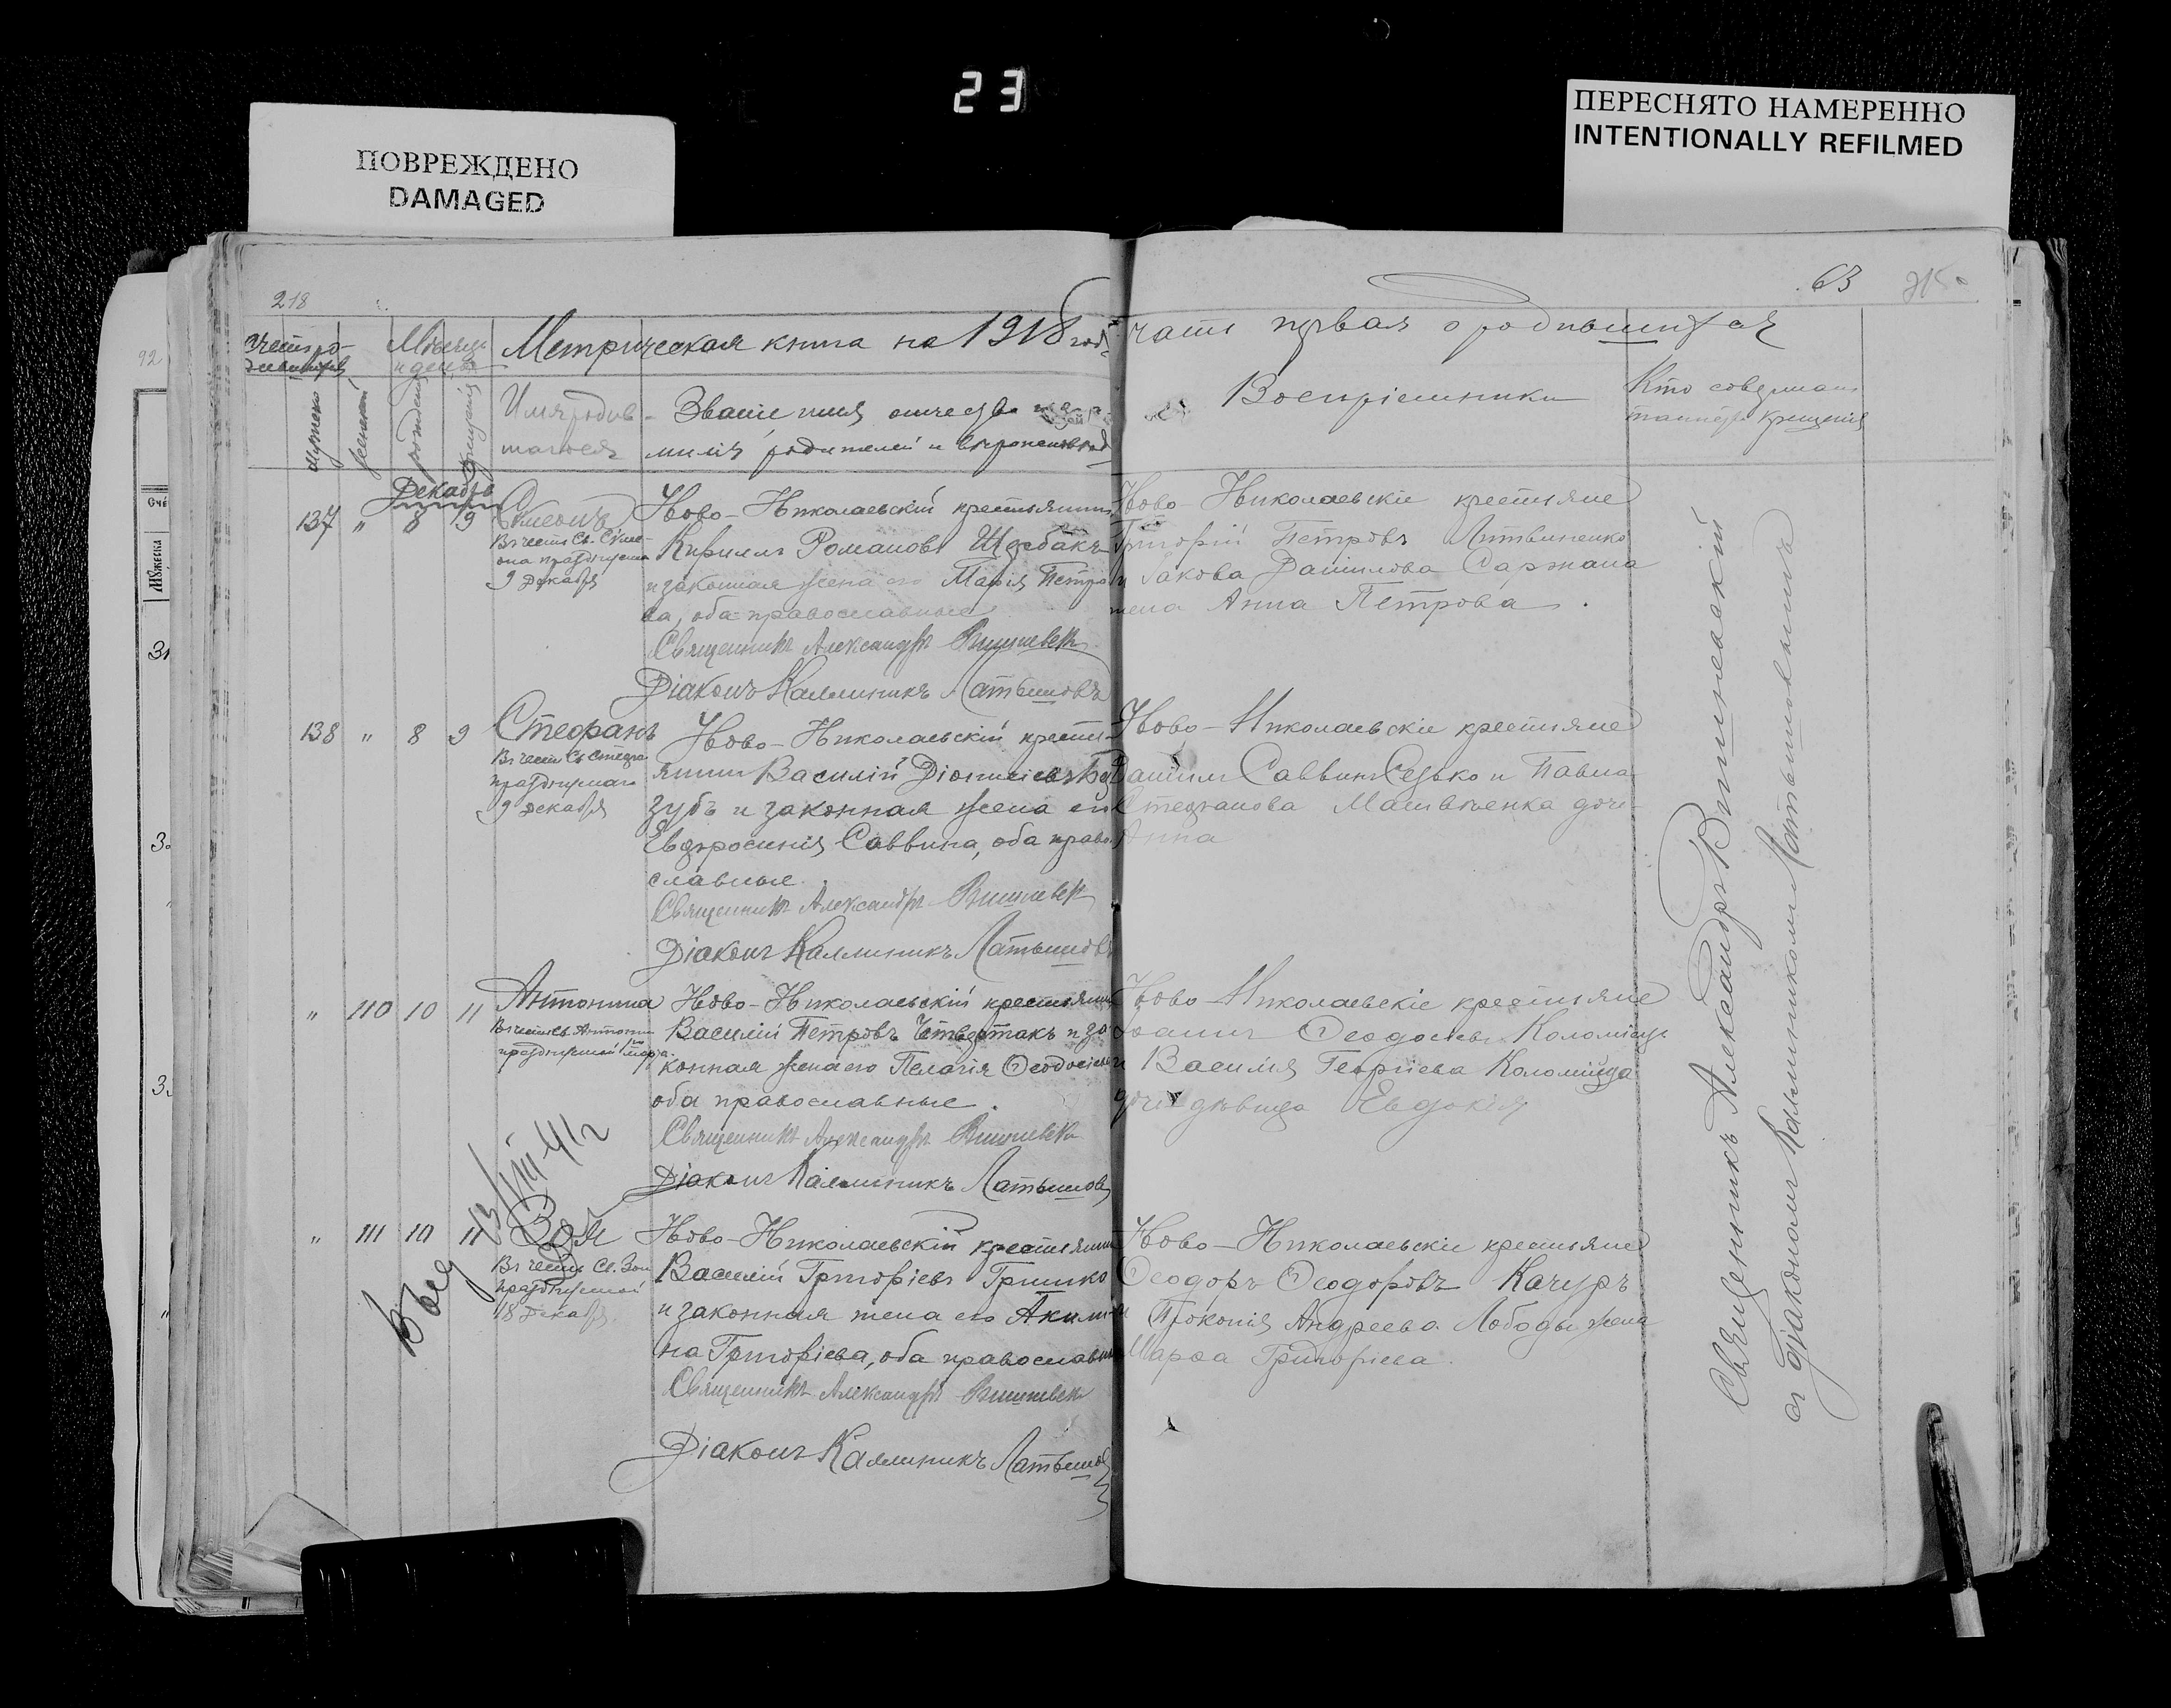 23
ПОВРЕЖДЕНО
DAMAGED
ПЕРЕСНЯТО НАМЕРЕННО
INTENTIONALLY REFILMED
218
63
92
Метрическая книга на 1918 годъ
часть первая о родившихся
Мѣсяцъ
и день
мужеска
женской
рожденія
крещенія
Имя родив-
шагося
Званіе, имя, отчество и фа-
милія родителей и вѣроисповѣд
Воспріемники
Кто совершалъ
таинство крещенія
Декабрь
137 " 8 9
Сѵмеонъ
Въ честь Св. Сѵме-
она празднуема
9 Декабря
Ново-Николаевскій крестьянинъ
Кириллъ Романовъ Щербакъ
и законная жена его Марія Петро
ва, оба православные
Священникъ Александръ Вишневск
Діаконъ Каллиникъ Латышовъ
Ново-Николаевскіе крестьяне
Григорій Петровъ Литвиненко
и Іакова Данилова Саржана
жена Анна Петрова.
138 " 8 9
Стефанъ
Въ честь Св Стефа
празднуемаго
9 Декабря
Ново-Николаевскій кресть-
янинъ Василій Діонисіевъ Бе
зубъ и законная жена его
Евфросинія Саввина, оба право
славные.
Священникъ Александръ Вишневск
Діаконъ Каллиникъ Латышовъ
Ново-Николаевскіе крестьяне
Даніилъ Саввинъ Седько и Павла
Стефанова Матвѣенка дочь
Анна
" 110 10 11
Антонина
Въ честь Св. Антонин
празднуемой
Ново-Николаевскій крестьянинъ
Василій Петровъ Четвертакъ и за
конная жена его Пелагія Ѳеодосіева
оба православные.
Священникъ Александръ Вишневск
Діаконъ Каллиникъ Латышовъ
Ново-Николаевскіе крестьяне
Іоаннъ Ѳеодосіевъ Коломіецъ
и Василія Георгіева Коломійца
дочь дѣвица Евдокія
" 111 10 11
Зоя
Въ честь Св. Зои
празднуемой
18 Декабря.
Ново-Николаевскій крестьянинъ
Василій Григоріевъ Гришко
и законная жена его Акили-
на Григоріева, оба православные
Священникъ Александръ Вишневск
Діаконъ Каллиникъ Латышов
Ново-Николаевскіе крестьяне
Ѳеодоръ Ѳеодоровъ Качуръ
и Прокопія Андреева Лободы жена
Марѳа Григоріева.
Священникъ Александръ Вишневскій
съ діакономъ Каллиникомъ Латышовымъ